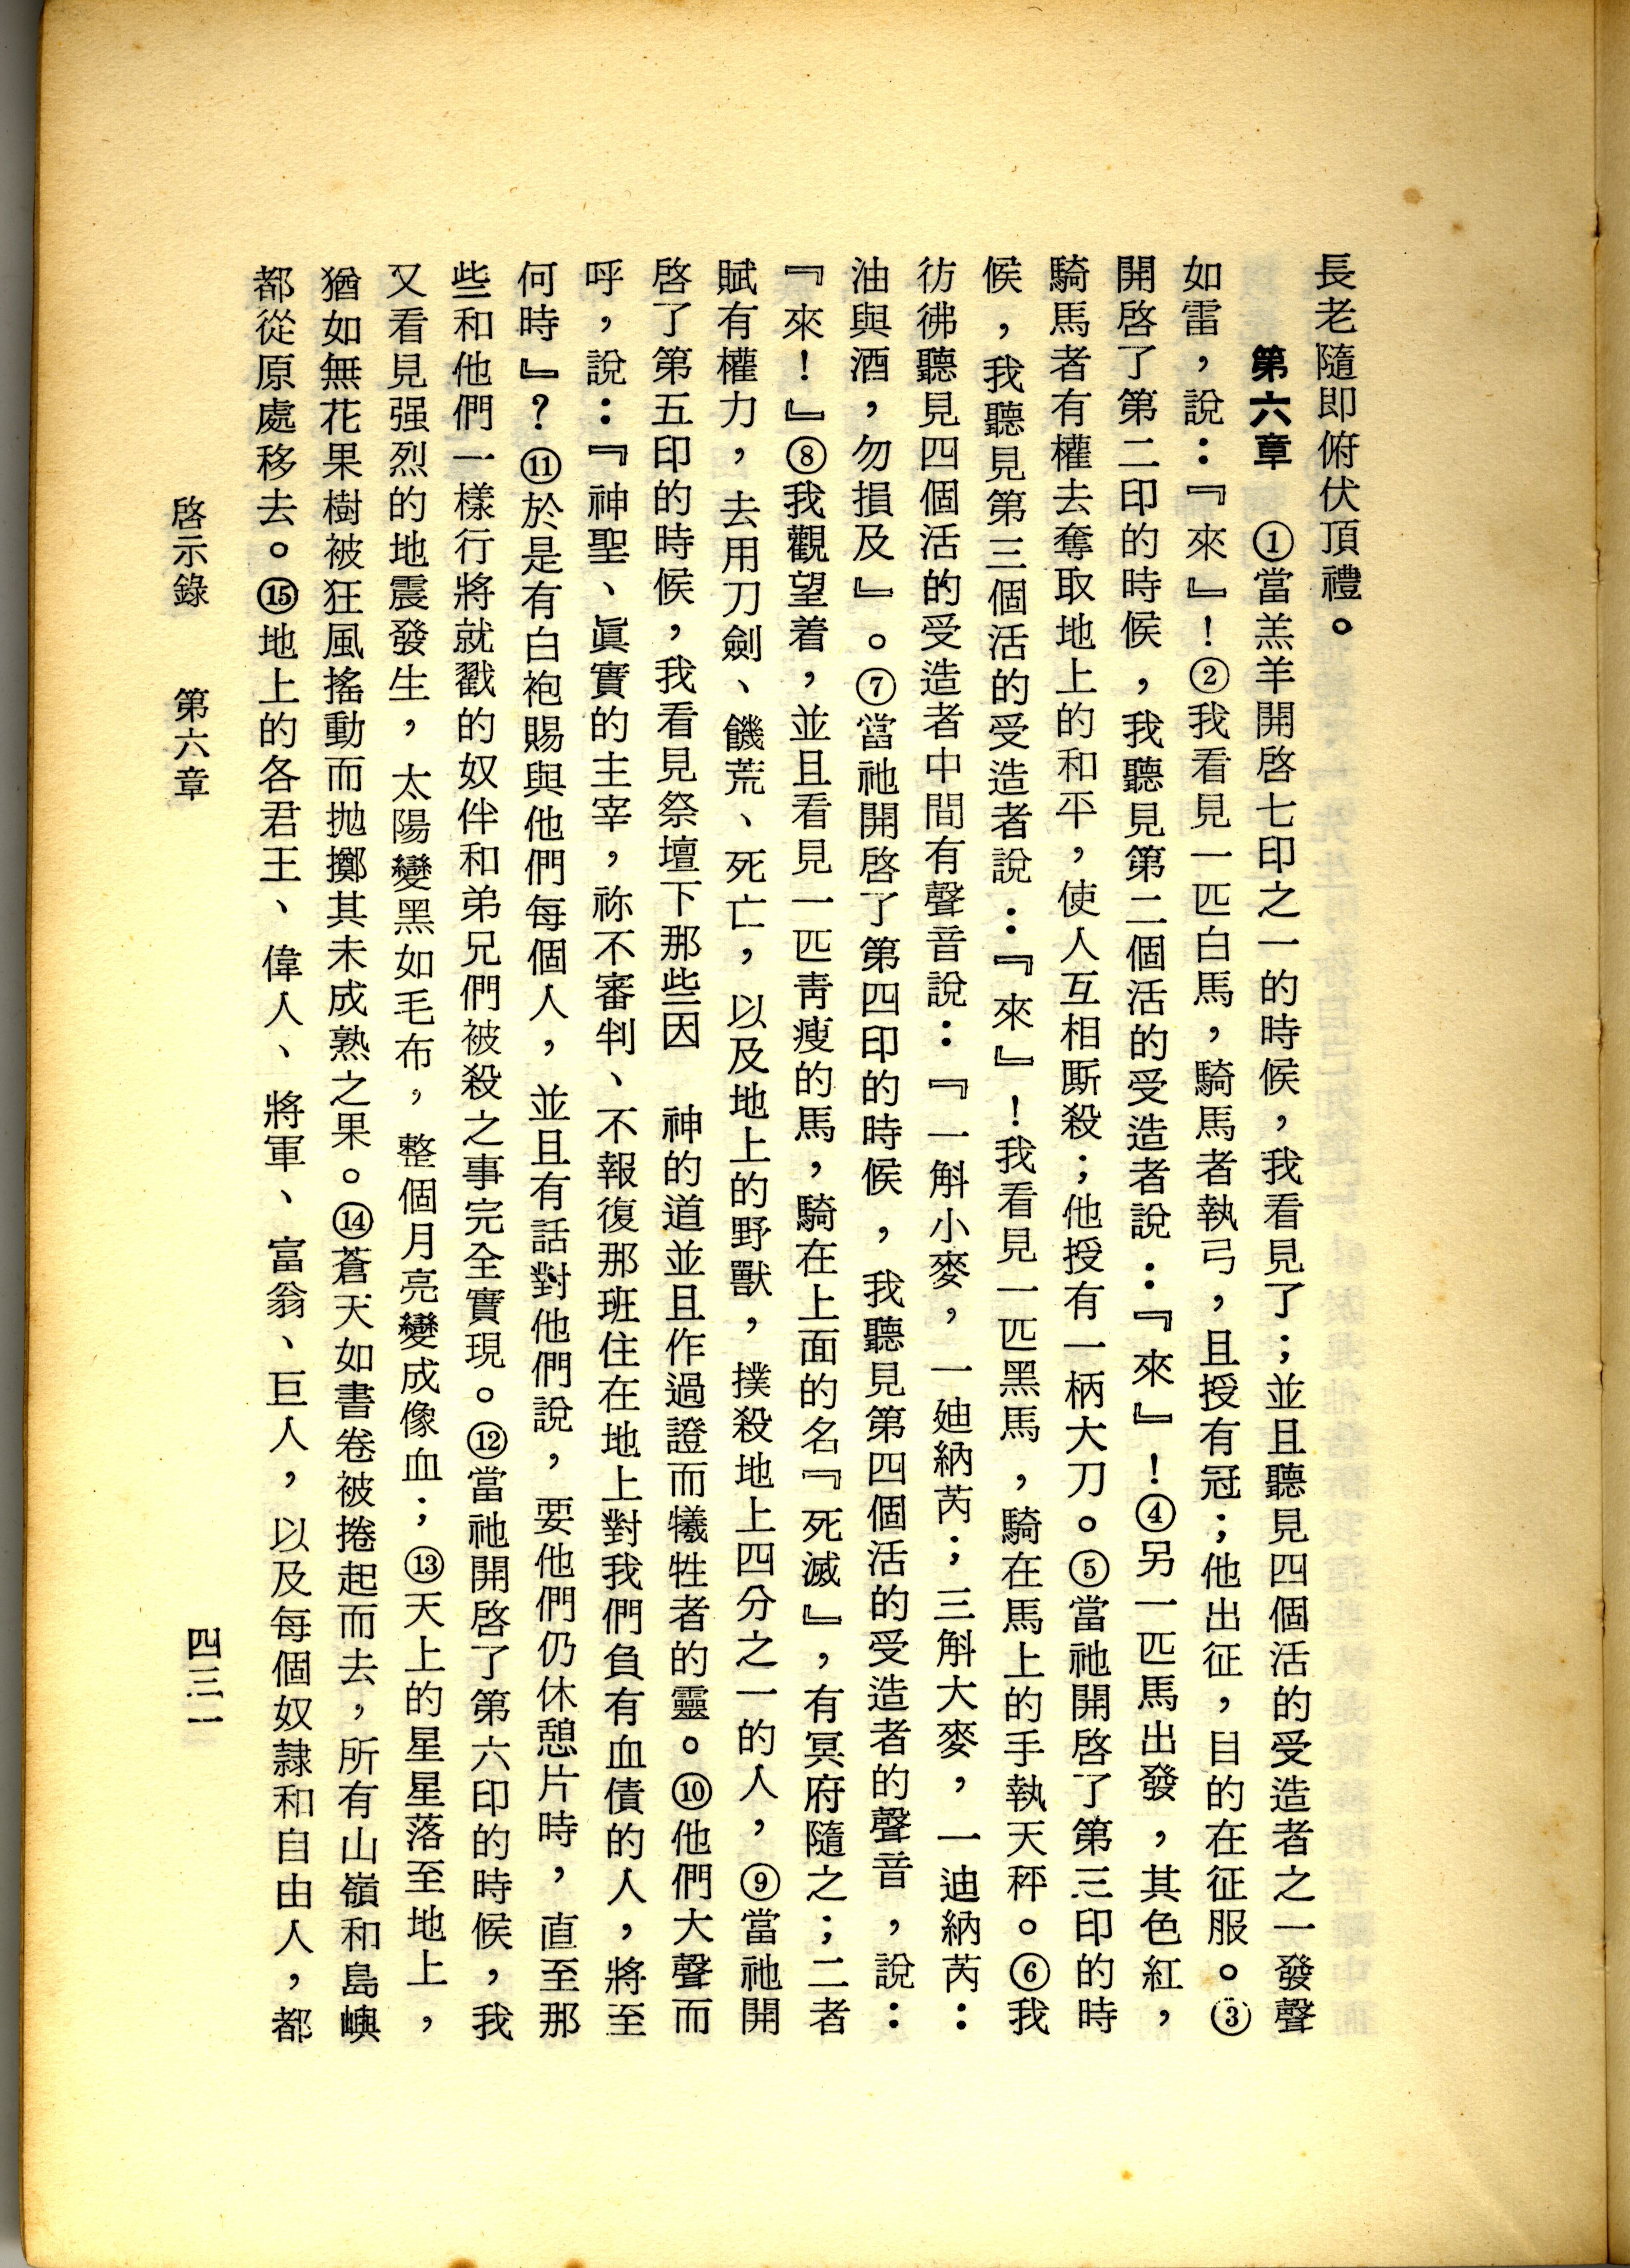 長老隨即俯伏頂禮。
第六章　①當羔羊開啓七印之一的時候，我看見了；並且聽見四個活的受造者之一發聲
如雷，說：『來』！②我看見一匹白馬，騎馬者執弓，且授有冠；他出征，目的在征服。③
開啓了第二印的時候，我聽見第二個活的受造者說：『來』！④另一匹馬出發，其色紅，
騎馬者有權去奪取地上的和平，使人互相厮殺；他授有一柄大刀。⑤當祂開啓了第三印的時
候，我聽見第三個活的受造者說：『來』！我看見一匹黑馬，騎在馬上的手執天秤。⑥我
彷彿聽見四個活的受造者中間有聲音說：『一斛小麥，一廸納芮；三斛大麥，一迪納芮：
油與酒，勿損及』。⑦當祂開啓了第四印的時候，我聽見第四個活的受造者的聲音，說：
『來！』⑧我觀望着，並且看見一匹靑瘦的馬，騎在上面的名『死滅』，有冥府隨之；二者
賦有權力，去用刀劍、饑荒、死亡，以及地上的野獸，撲殺地上四分之一的人，⑨當祂開
啓了第五印的時候，我看見祭壇下那些因　神的道並且作過證而犧牲者的靈。⑩他們大聲而
呼，說：『神聖、眞實的主宰，祢不審判、不報復那班住在地上對我們負有血債的人，將至
何時』？⑪於是有白袍賜與他們每個人，並且有話對他們說，要他們仍休憩片時，直至那
些和他們一樣行將就戮的奴伴和弟兄們被殺之事完全實現。⑫當祂開啓了第六印的時候，我
又看見强烈的地震發生，太陽變黑如毛布，整個月亮變成像血；⑬天上的星星落至地上，
猶如無花果樹被狂風搖動而抛擲其未成熟之果。⑭蒼天如書卷被捲起而去，所有山嶺和島嶼
都從原處移去。⑮地上的各君王、偉人、將軍、富翁、巨人，以及每個奴隸和自由人，都
啓示錄　第六章　四三一